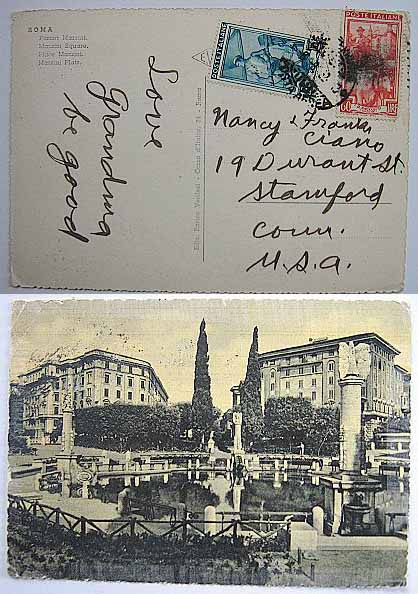 ROMA
Piazza Mazzini.
Mazzini Square.
Place Mazzini.
Mazzini Platz.
Love
Grandma
be good
POSTE ITALIANE
POSTE ITALIANE
60
Nancy & Frank
Ciano
19 Durant St.
Stamford
Conn.
U.S.A.